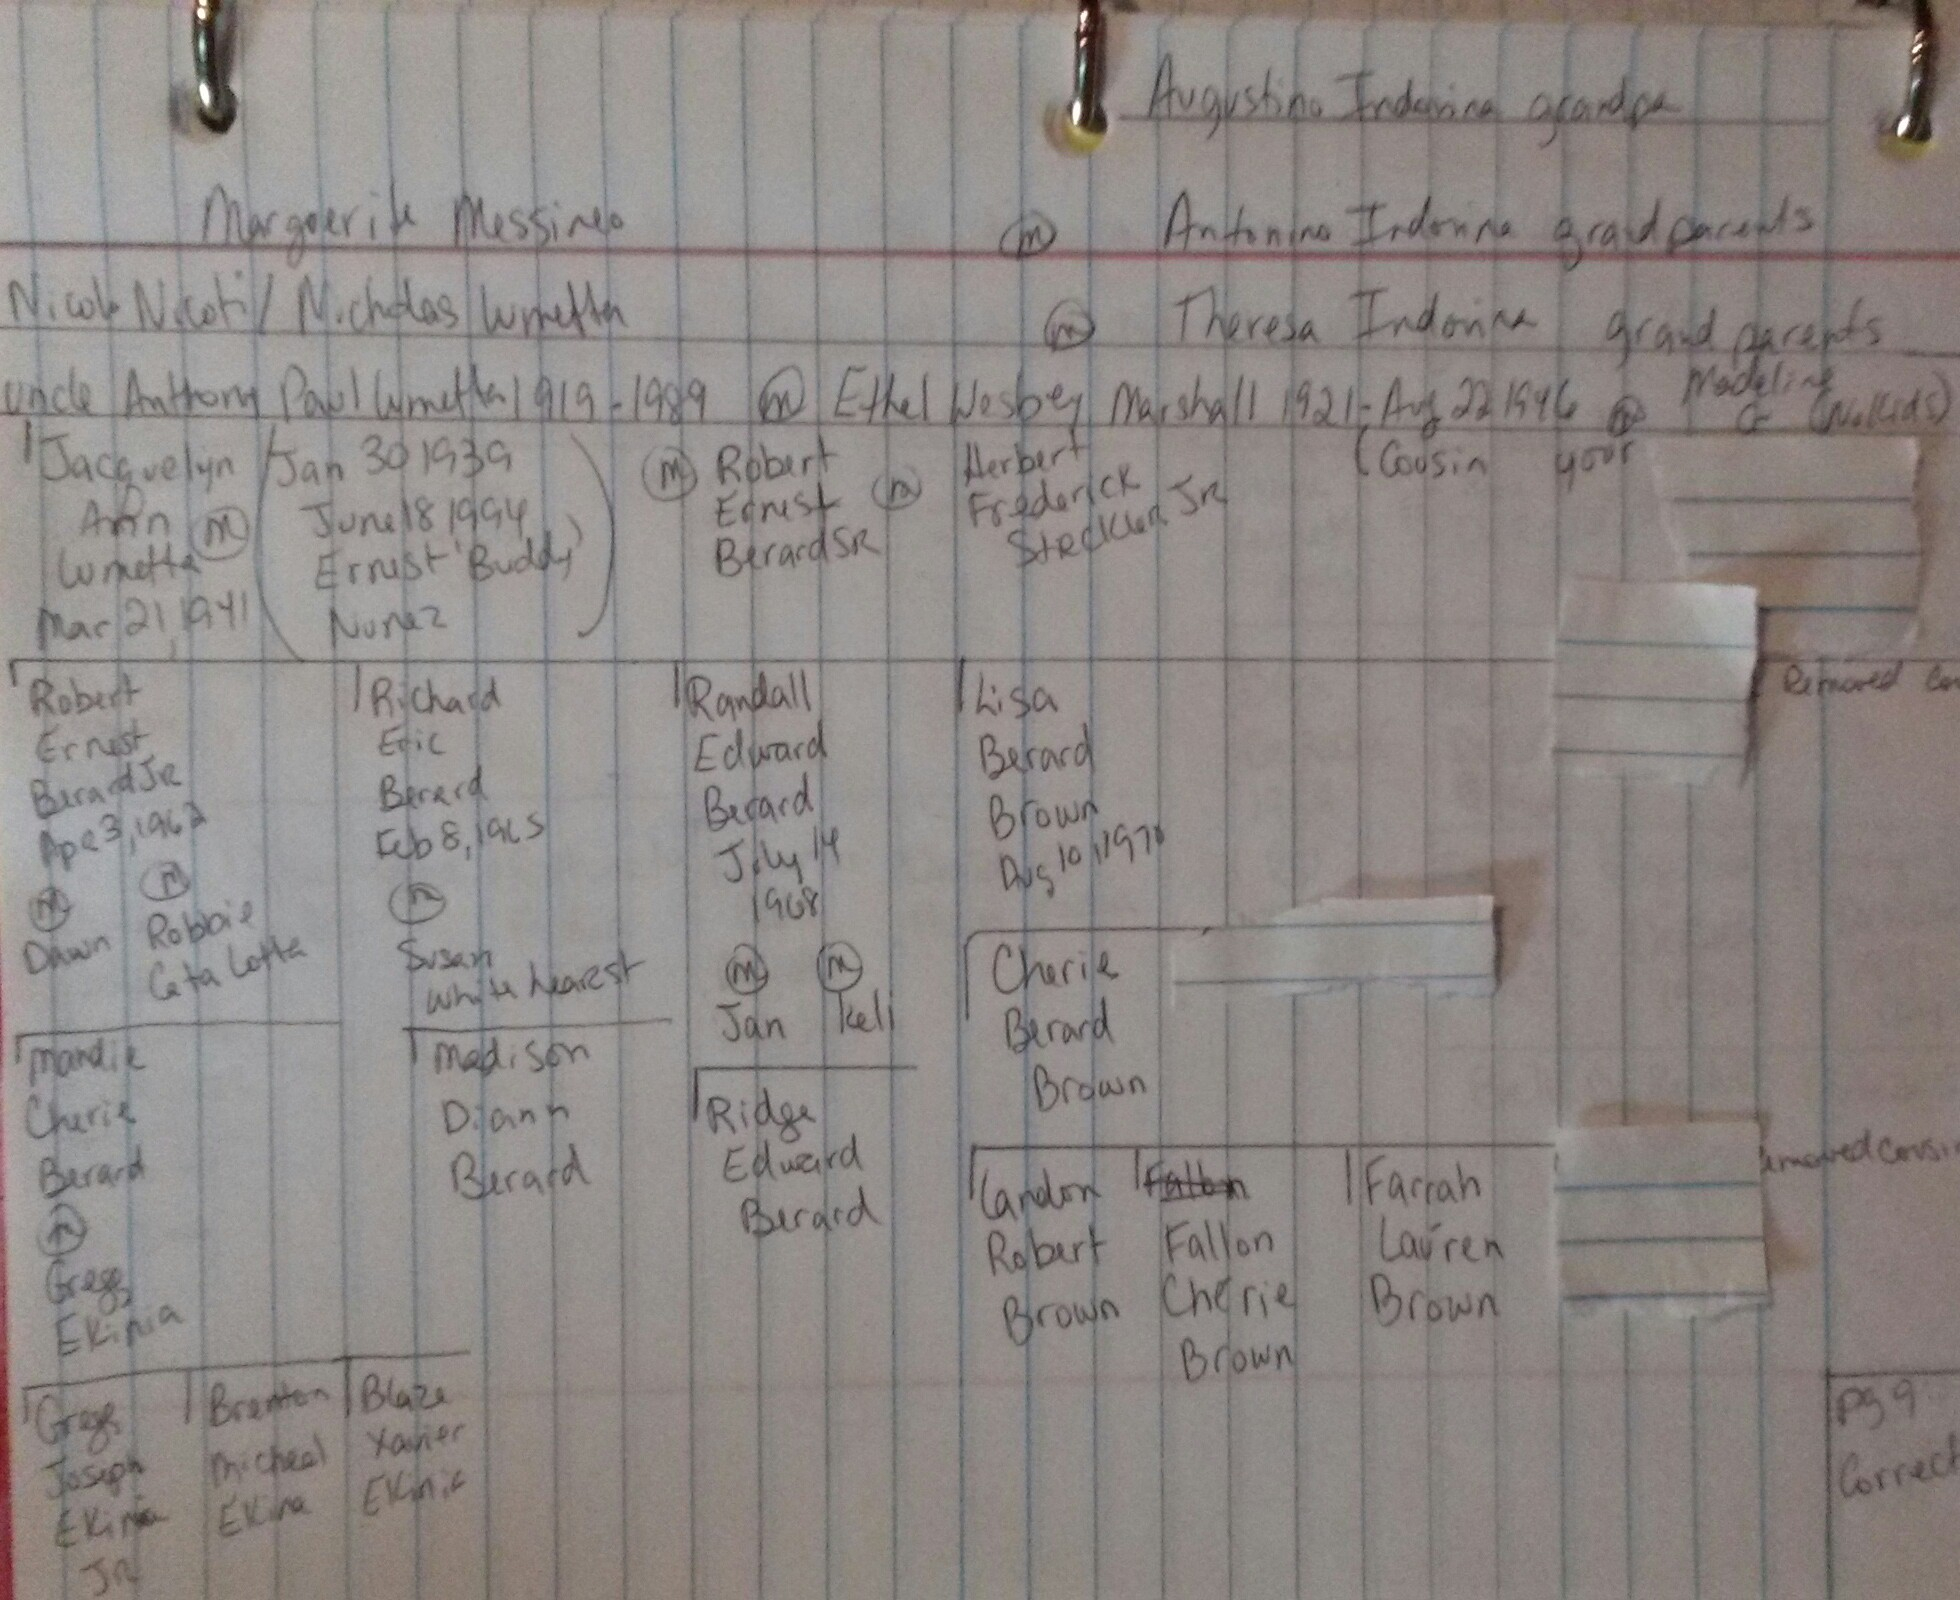 Augustino Indovina grandpa
Marguerite Messineo (m) Antonino Indovina grandparents
Nicolo Nicoti / Nicholas Lumetta (m) Theresa Indovina grand parents
uncle Anthony Paul Lumetta 1919-1989 (m) Ethel Wesbey Marshall 1921-Aug 22 1946 (m) Madeline
G (No Kids)
Jacquelyn
Ann (m)
Lumetta
Mar 21, 1941
(Jan 30 1939
June 18 1994
Ernest 'Buddy'
Nunez)
(m) Robert
Ernest
Berard SR
(m) Herbert
Frederick
Steckler JR
(Cousin your
Removed
Robert
Ernest
Berard JR
Apr 3, 1962
(m) (m)
Dawn Robbie
Cata Lotta
Richard
Eric
Berard
Feb 8, 1965
(m)
Susan
White hearest
Randall
Edward
Berard
July 14
1968
(m) (m)
Jan Keli
Lisa
Berard
Brown
Aug 10, 1970
Cherie
Berard
Brown
Mandie
Cherie
Berard
(m)
Gregg
EKinia
Madison
Diann
Berard
Ridge
Edward
Berard
Landon
Robert
Brown
Fallon
Fallon
Cherie
Brown
Farrah
Lauren
Brown
Gregg
Joseph
EKinia
JR
Brenton
Micheal
EKina
Blaze
Xavier
EKinia
pg 9
Correct